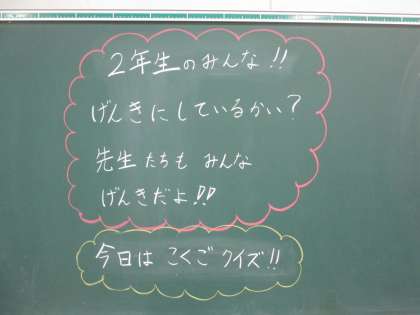 2年生のみんな!!
げんきにしているかい?
先生たちも みんな
げんきだよ!!
今日は こくご クイズ!!